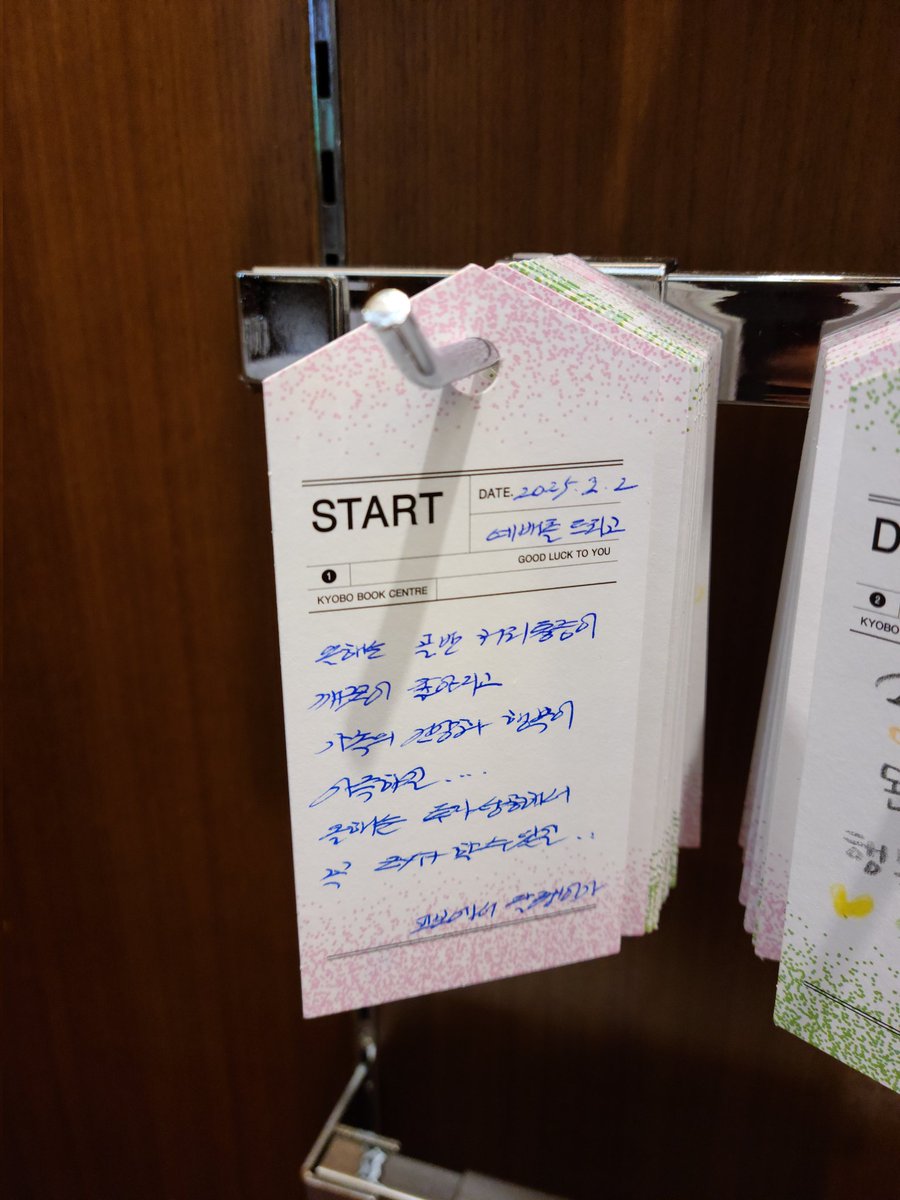 START
DATE. 2025. 2. 2
예배를 드리고
GOOD LUCK TO YOU
1
KYOBO BOOK CENTRE
올해는 골반 허리통증이
깨끗이 좋아지고
가족의 건강과 행복이
가득하길 ....
올해는
꼭 ..
교보에서
D
2
KYOBO